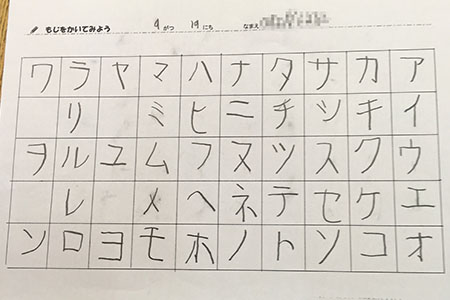 もじをかいてみよう がつ 19にち なまえ
アイウエオ
カキクケコ
サシスセソ
タチツテト
ナニヌネノ
ハヒフヘホ
マミムメモ
ヤユヨ
ラリルレロ
ワヲン